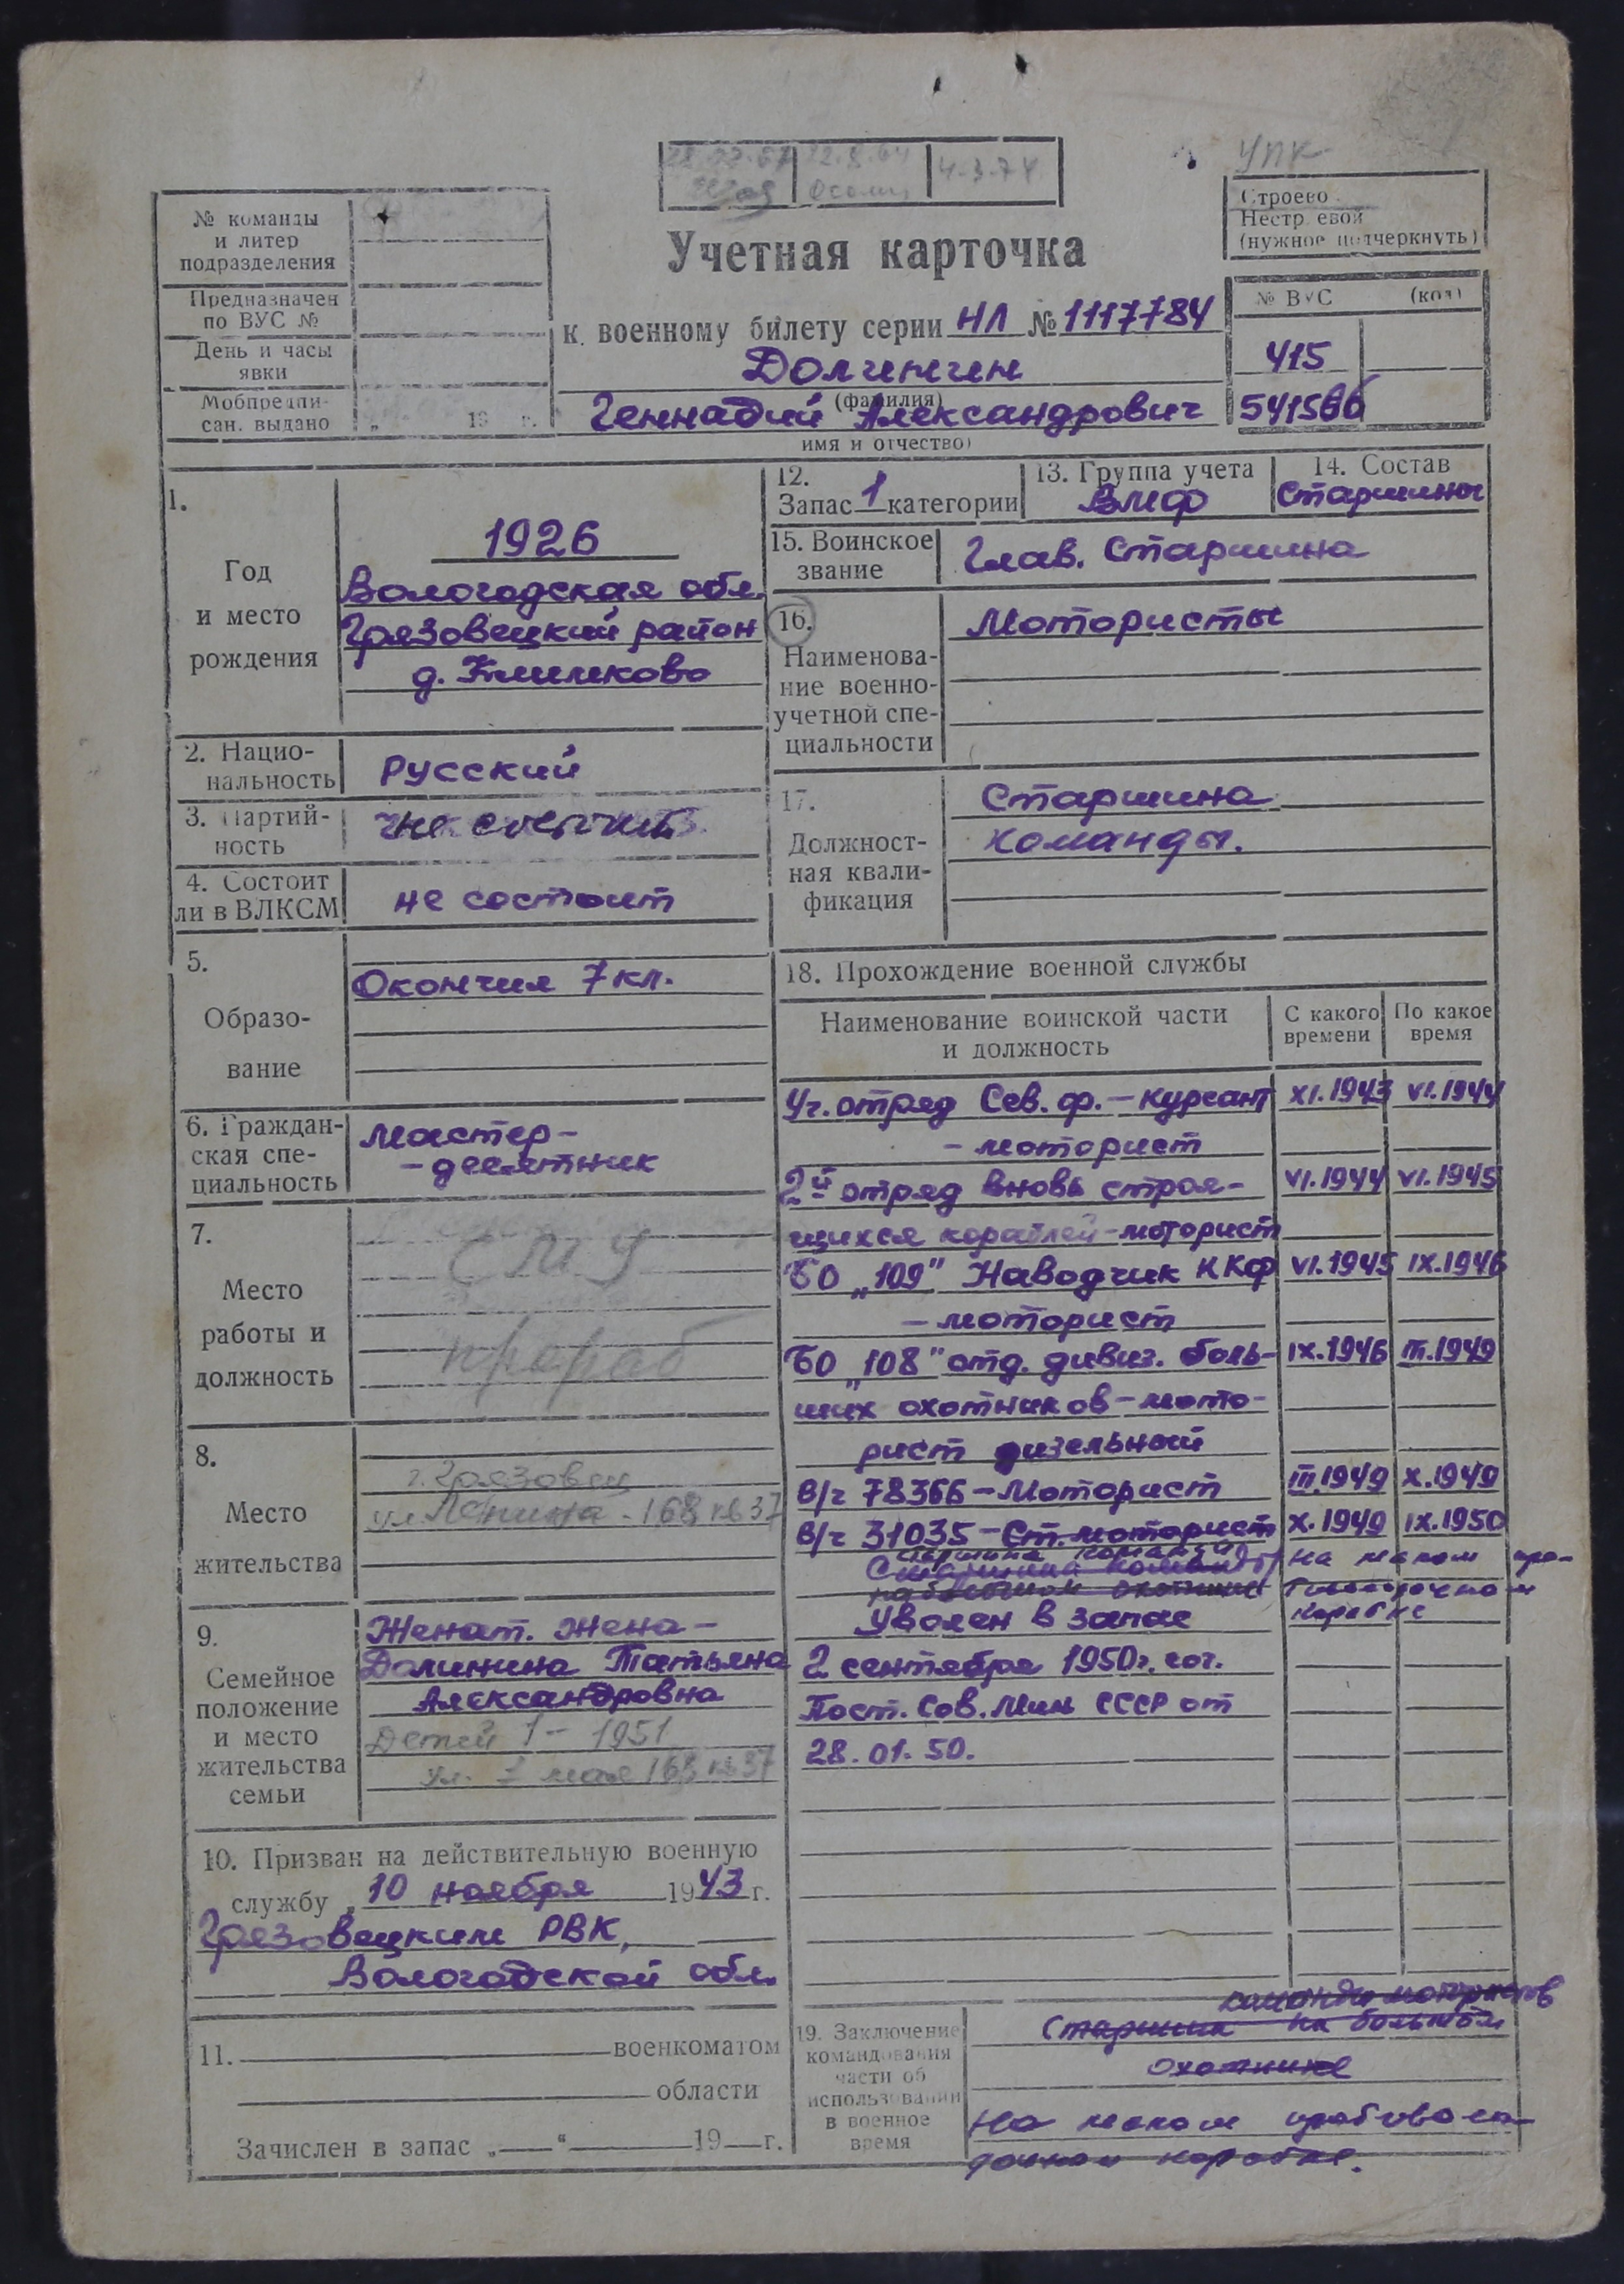 УПК
12.8.64
4-3-74
Строево
Нестроевой
(нужное подчеркнуть)
№ команды
и литер
подразделения
Предназначен
по ВУС №
День и часы
явки
Мобпредпи-
сан. выдано „ 19 г.
Учетная карточка
к военному билету серии НЛ № 1117784
Долинин
(фамилия)
Геннадий Александрович
имя и отчество)
№ ВУС (код)
415
541566
1.
Год
и место
рождения
1926
Вологодская обл.
Грязовецкий район
д. Климково
2. Нацио-
нальность
Русский
3. Партий-
ность
не состоит
4. Состоит
ли в ВЛКСМ
не состоит
5.
Образо-
вание
Окончил 7 кл.
6. Граждан-
ская спе-
циальность
Мастер-
-десятник
7.
Место
работы и
должность
СМУ
прораб
8.
Место
жительства
г. Грязовец
ул. Ленина - 168 кв 37
9.
Семейное
положение
и место
жительства
семьи
Женат. Жена -
Долинина Татьяна
Александровна
Детей 1 - 1951
ул. 1 мая 168 кв 37
10. Призван на действительную военную
службу „ 10 ноября 1943 г.
Грязовецким РВК,
Вологодской обл.
11. военкоматом
области
Зачислен в запас „ “ 19 г.
12.
Запас 1 категории
13. Группа учета
ВМФ
14. Состав
Старшины
15. Воинское
звание
Глав. Старшина
16.
Наименова-
ние военно-
учетной спе-
циальности
Мотористы
17.
Должност-
ная квали-
фикация
Старшина
команды.
18. Прохождение военной службы
Наименование воинской части
и должность
С какого
времени
По какое
время
Уч. отряд Сев. ф. - курсант XI.1943 VI.1944
- моторист
2й отряд вновь строя- VI.1944 VI.1945
щихся кораблей - моторист
БО „109" Наводчик ККФ VI.1945 IX.1946
- моторист
БО „108" отд. дивиз. боль- IX.1946 III.1949
ших охотников - мото-
рист дизельный
В/ч 78366 - Моторист III.1949 X.1949
В/ч 31035 - Ст. моторист X.1949 IX.1950
старшина команды
Старшина команды на малом про-
на большом охотнике тиволодочном
корабле
Уволен в запас
2 сентября 1950 г. сог.
Пост. Сов. Мин СССР от
28.01.50.
19. Заключение
командования
части об
использовании
в военное
время
команды мотористов
Старшина на большом
охотнике
на малом противоло-
дочном корабле.